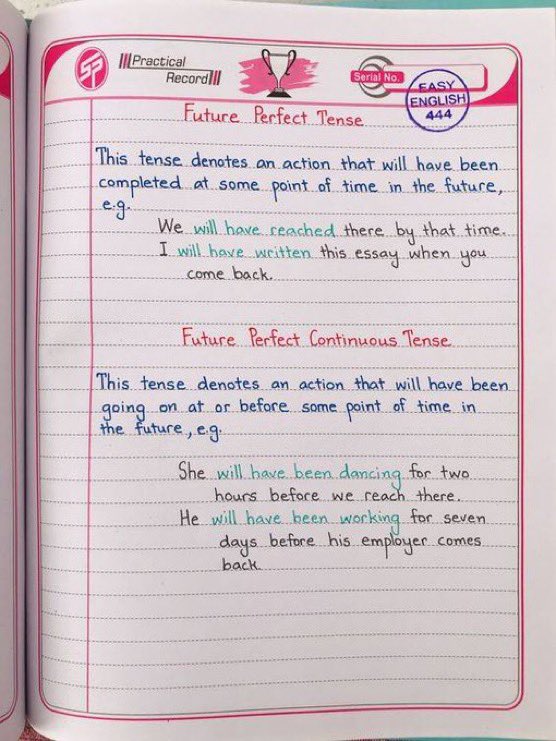 SP
Practical
Record
Serial No.
EASY
ENGLISH
444
Future Perfect Tense
This tense denotes an action that will have been
completed at some point of time in the future,
e.g.
We will have reached there by that time.
I will have written this essay when you
come back.
Future Perfect Continuous Tense
This tense denotes an action that will have been
going on at or before some point of time in
the future, e.g.
She will have been dancing for two
hours before we reach there.
He will have been working for seven
days before his employer comes
back